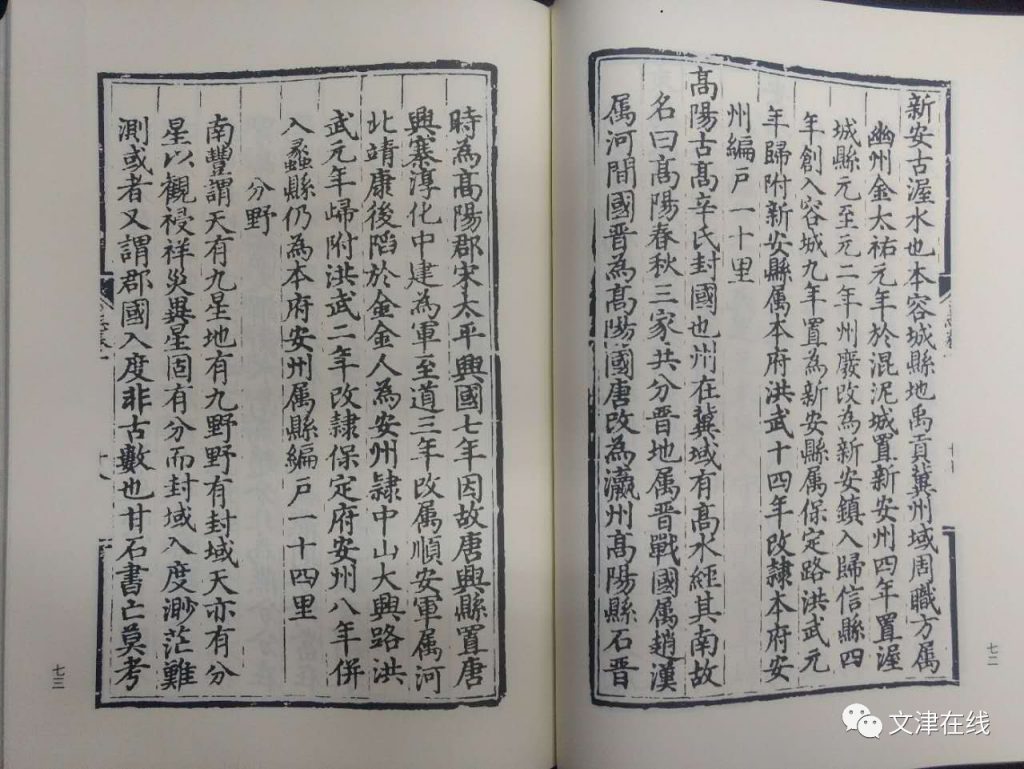 新安古渥水也本容城縣地禹貢冀州域周職方属
幽州金太祐元年於混泥城置新安州四年置渥
城縣元至元二年州廢改為新安鎮入歸信縣四
年創入容城九年置為新安縣属保定路洪武元
年歸附新安縣属本府洪武十四年改隷本府安
州編戸一十里
髙陽古髙辛氏封國也州在冀域有髙水經其南故
名曰髙陽春秋三家共分晉地属晉戰國属趙漢
属河間國晉為髙陽國唐改為瀛州髙陽縣石晉
七二
時為髙陽郡宋太平興國七年因故唐興縣置唐
興寨淳化中建為軍至道三年改属順安軍属河
北靖康後䧟於金金人為安州隷中山大興路洪
武元年歸附洪武二年改隷保定府安州八年併
入蠡縣仍為本府安州属縣編戸一十四里
分野
南豐謂天有九星地有九野野有封域天亦有分
星以觀祲祥災異星固有分而封域入度渺茫難
測或者又謂郡國入度非古數也甘石書亡莫考
十八
七三
文津在线